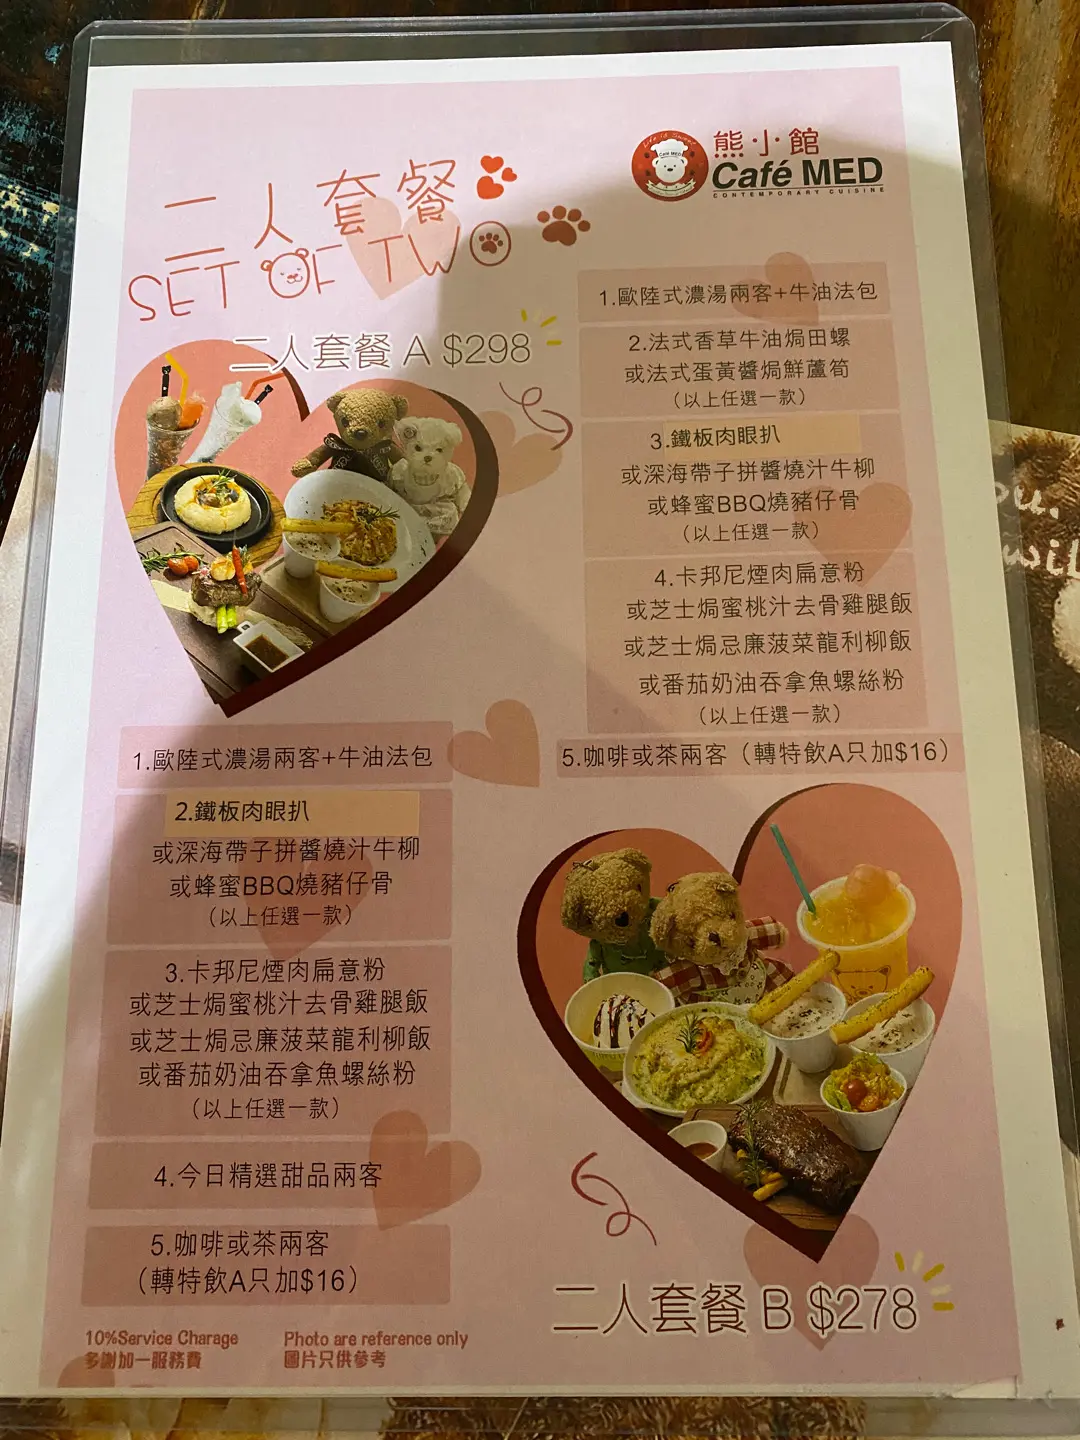 熊小館
Café MED
CONTEMPORARY CUISINE
二人套餐
SET OF TWO
二人套餐 A $298
1.歐陸式濃湯兩客+牛油法包
2.法式香草牛油焗田螺
或法式蛋黃醬焗鮮蘆筍
（以上任選一款）
3.鐵板肉眼扒
或深海帶子拼醬燒汁牛柳
或蜂蜜BBQ燒豬仔骨
（以上任選一款）
4.卡邦尼煙肉扁意粉
或芝士焗蜜桃汁去骨雞腿飯
或芝士焗忌廉菠菜龍利柳飯
或番茄奶油吞拿魚螺絲粉
（以上任選一款）
5.咖啡或茶兩客（轉特飲A只加$16）
1.歐陸式濃湯兩客+牛油法包
2.鐵板肉眼扒
或深海帶子拼醬燒汁牛柳
或蜂蜜BBQ燒豬仔骨
（以上任選一款）
3.卡邦尼煙肉扁意粉
或芝士焗蜜桃汁去骨雞腿飯
或芝士焗忌廉菠菜龍利柳飯
或番茄奶油吞拿魚螺絲粉
（以上任選一款）
4.今日精選甜品兩客
5.咖啡或茶兩客
（轉特飲A只加$16）
二人套餐 B $278
10%Service Charage
多謝加一服務費
Photo are reference only
圖片只供參考